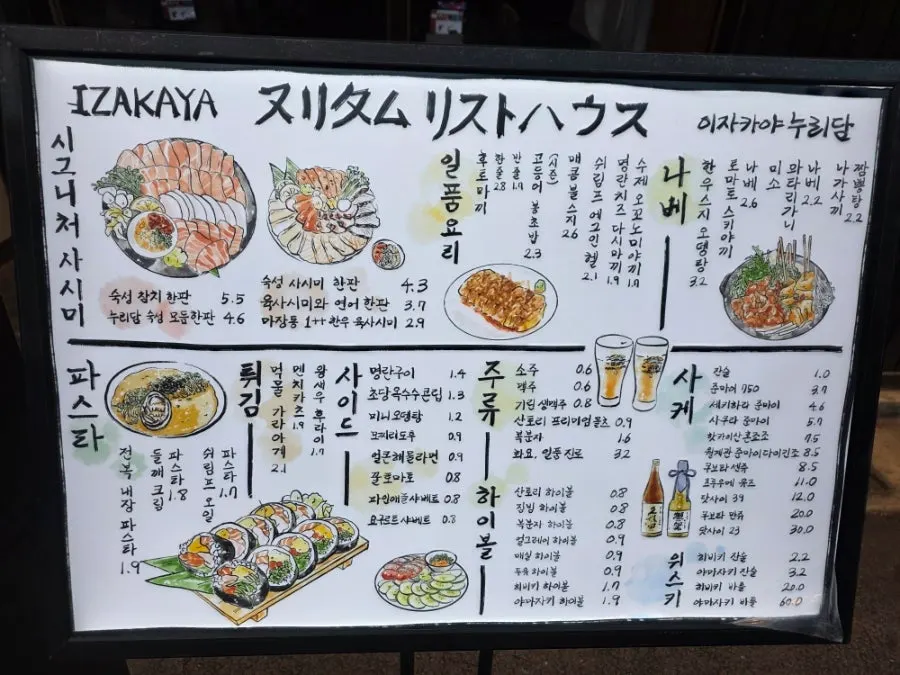 IZAKAYA
ヌリタム リストハウス
이자카야 누리담
시그니처 사시미
숙성 참치 한판 5.5
누리담 숙성 모둠한판 4.6
숙성 사시미 한판 4.3
육사시미와 연어 한판 3.7
마장동 1++ 한우 육사시미 2.9
일품요리
후토마끼
한줄 2.8
반줄 1.9
고등어 봉초밥 2.3
(시즌)
매콤불스지 2.6
쉬림프 에그인헬 2.1
명란치즈 다시마끼 1.9
수제 오꼬노미야끼 1.9
나베
한우스지 오뎅탕 3.2
토마토 스키야끼
나베 2.6
미소
와타리가니
나베 2.2
나가사끼
짬뽕탕 2.2
파스타
전복 내장 파스타 1.9
들깨크림
파스타 1.8
쉬림프 오일
파스타 1.7
튀김
먹물 가라아게 2.1
멘치카츠 1.9
왕새우 후라이 1.7
사이드
명란구이 1.4
초당옥수수콘딥 1.3
미니오뎅탕 1.2
모찌리도후 0.9
얼큰해물라면 0.9
꿀토마토 0.8
파인애플샤베트 0.8
요구르트샤베트 0.8
주류
소주 0.6
맥주 0.6
기린 생맥주 0.8
산토리 프리미엄 몰츠 0.9
복분자 1.6
화요, 일품진로 3.2
하이볼
산토리 하이볼 0.8
짐빔 하이볼 0.8
복분자 하이볼 0.8
얼그레이 하이볼 0.9
매실 하이볼 0.9
하이볼 0.9
히비키 하이볼 1.7
야마자키 하이볼 1.9
사케
잔술 1.0
준마이 750 3.9
세키하라 준마이 4.6
사쿠라 준마이 5.7
핫카이산 혼죠조 7.5
월계관 준마이다이긴조 8.5
쿠보타 센쥬 8.5
유즈 11.0
닷사이 39 12.0
쿠보타 만쥬 20.0
닷사이 23 30.0
위스키
히비키 잔술 2.2
야마자키 잔술 3.2
히비키 바틀 20.0
야마자키 바틀 60.0